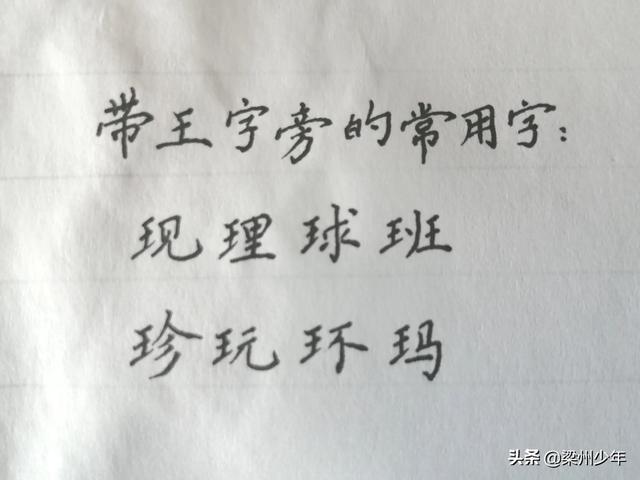 带王字旁的常用字：
现理球班
珍玩环玛
头条 @梁州少年